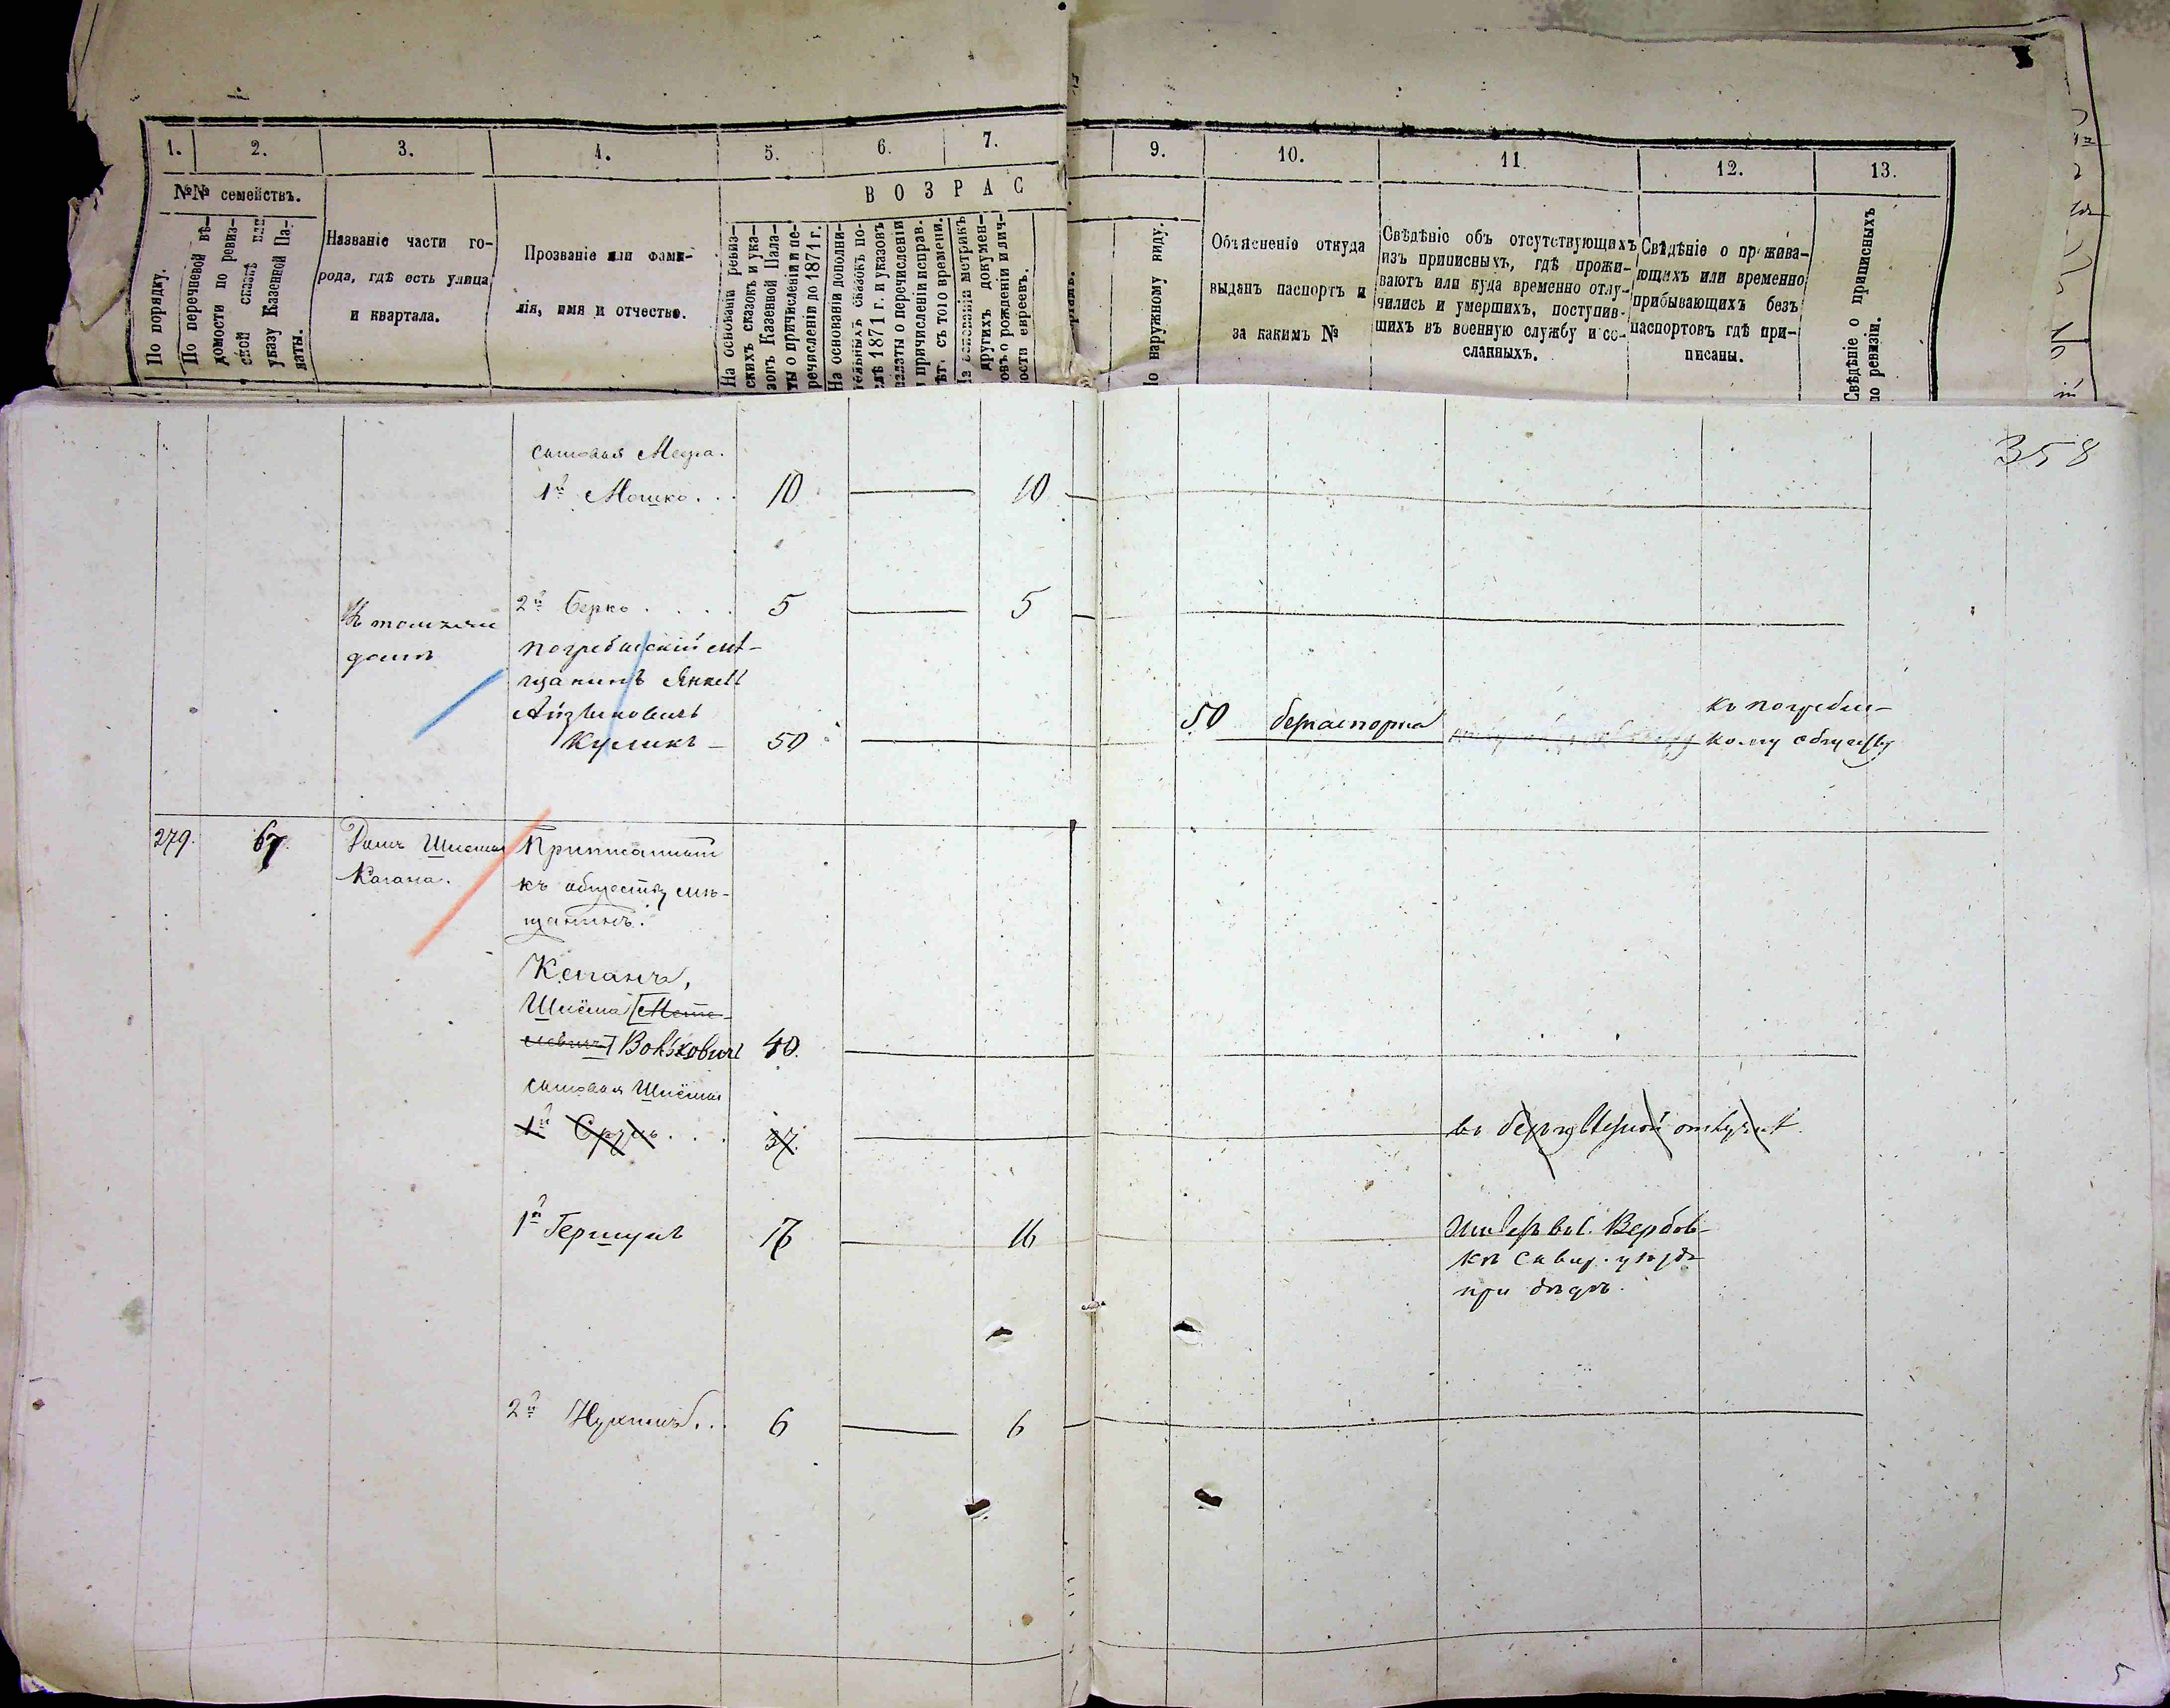 1.
2.
3.
4.
5.
6.
7.
9.
10.
11.
12.
13.
№№ семействъ.
По порядку.
По перечневой вѣ-
домости по ревиз-
ской сказкѣ или
указу Казенной Па-
латы.
Названіе части го-
рода, гдѣ есть улица
и квартала.
Прозваніе или фами-
лія, имя и отчество.
ВОЗРАС
На основаніи ревиз-
скихъ сказокъ и ука-
зовъ Казенной Пала-
ты о причисленіи и пе-
речисленіи до 1871 г.
На основаніи дополни-
тельныхъ сказокъ по-
слѣ 1871 г. и указовъ
палаты о перечисленіи
и причисленіи исправ.
лѣт. съ того времени.
На основаніи метрикъ
другихъ докумен-
товъ о рожденіи и лич-
ности евреевъ.
По наружному виду.
Объясненіе откуда
выданъ паспортъ и
за какимъ №
Свѣдѣніе объ отсутствующихъ
изъ приписныхъ, гдѣ прожи-
ваютъ или куда временно отлу-
чились и умершихъ, поступив-
шихъ въ военную службу и со-
сланныхъ.
Свѣдѣніе о прожива-
ющихъ или временно
прибывающихъ безъ
паспортовъ гдѣ при-
писаны.
Свѣдѣніе о приписныхъ
по ревизіи.
358
сыновья
1й Мошко . . 10 10
2й Берко . . . . 5 5
домѣ
Погребискій мѣ-
щанинъ Янкель
Айзиковичъ
Куликъ - 50 50 безпаспорта
къ погребис-
кому обществу
279. 67. Домъ Шлёмы
Кагана.
Приписанный
къ обществу мѣ-
щанинъ.
Каганъ,
Шлёма
Волковичъ 40.
сыновья Шлёмы
1й Сруль . . . 37.
1й Гершунъ 16 16
Живетъ въ с. Вербов-
кѣ Сквир. уѣздѣ
при дѣдѣ.
2й Нухимъ . . 6 6
5